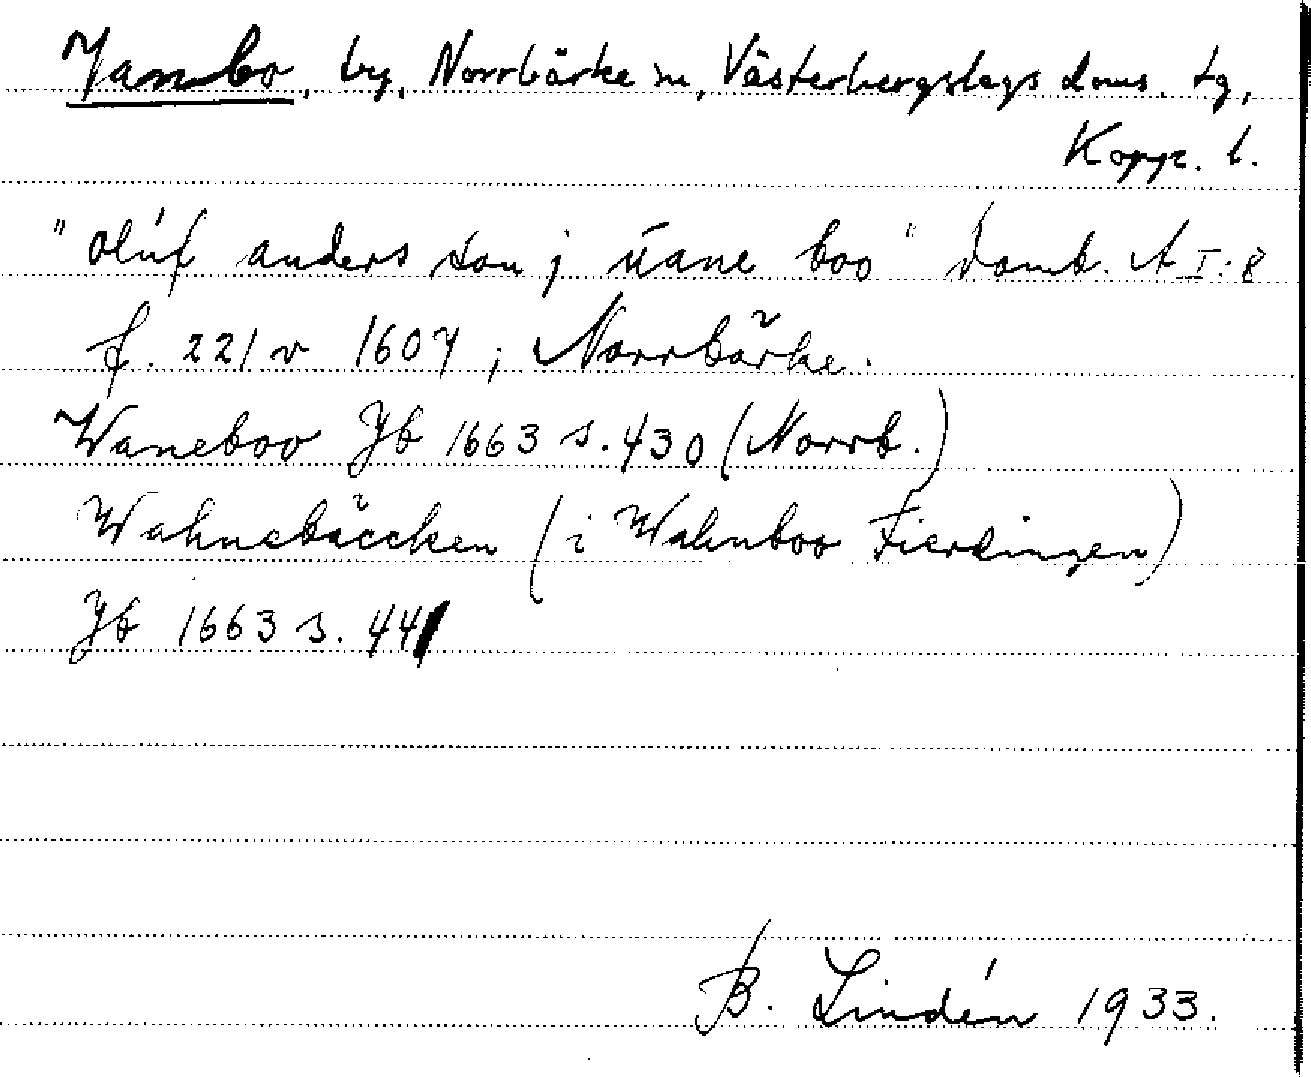 Vanbo, by, Norrbärke sn, Västerbergslags doms. tg,
Kopp. l.
"oluf anders son j uane boo" Domb. A I:8
f. 221 v 1607; Norrbärke.
Waneboo Jb 1663 s. 430 (Norrb.)
Wahnebäccken (i Wahnboo Fierdingen)
Jb 1663 s. 441
B. Lindén 1933.